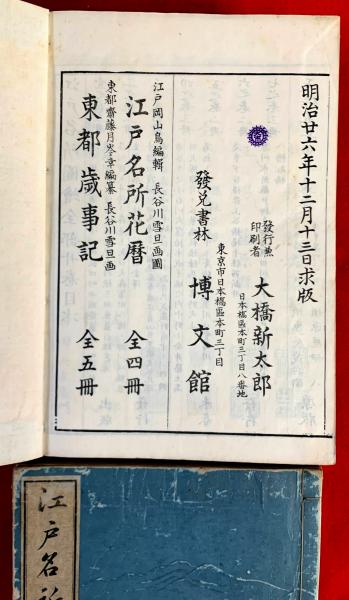 明治廿六年十二月十三日求版
發行兼
印刷者
大橋新太郎
日本橋區本町三丁目八番地
東京市日本橋區本町三丁目
發兌書林
博文館
江戸岡山鳥編輯 長谷川雪旦画圖
江戸名所花暦 全四冊
東都齋藤月岑章編纂 長谷川雪旦画
東都歳事記 全五冊
江戸名所